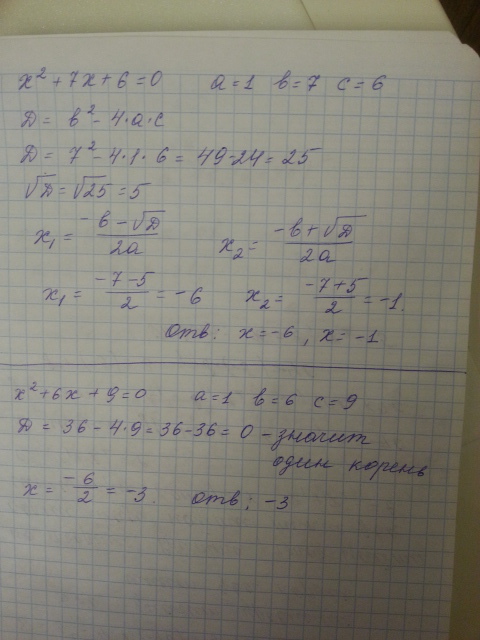 x² + 7x + 6 = 0 a = 1 в = 7 c = 6
Д = в² - 4·a·c
Д = 7² - 4·1·6 = 49 - 24 = 25
√Д = √25 = 5
x₁ = (-в - √Д)/2a x₂ = (-в + √Д)/2a
x₁ = (-7 - 5)/2 = -6 x₂ = (-7 + 5)/2 = -1.
отв: x = -6, x = -1
x² + 6x + 9 = 0 a = 1 в = 6 c = 9
Д = 36 - 4·9 = 36 - 36 = 0 - значит
один корень
x = -6/2 = -3. отв: -3